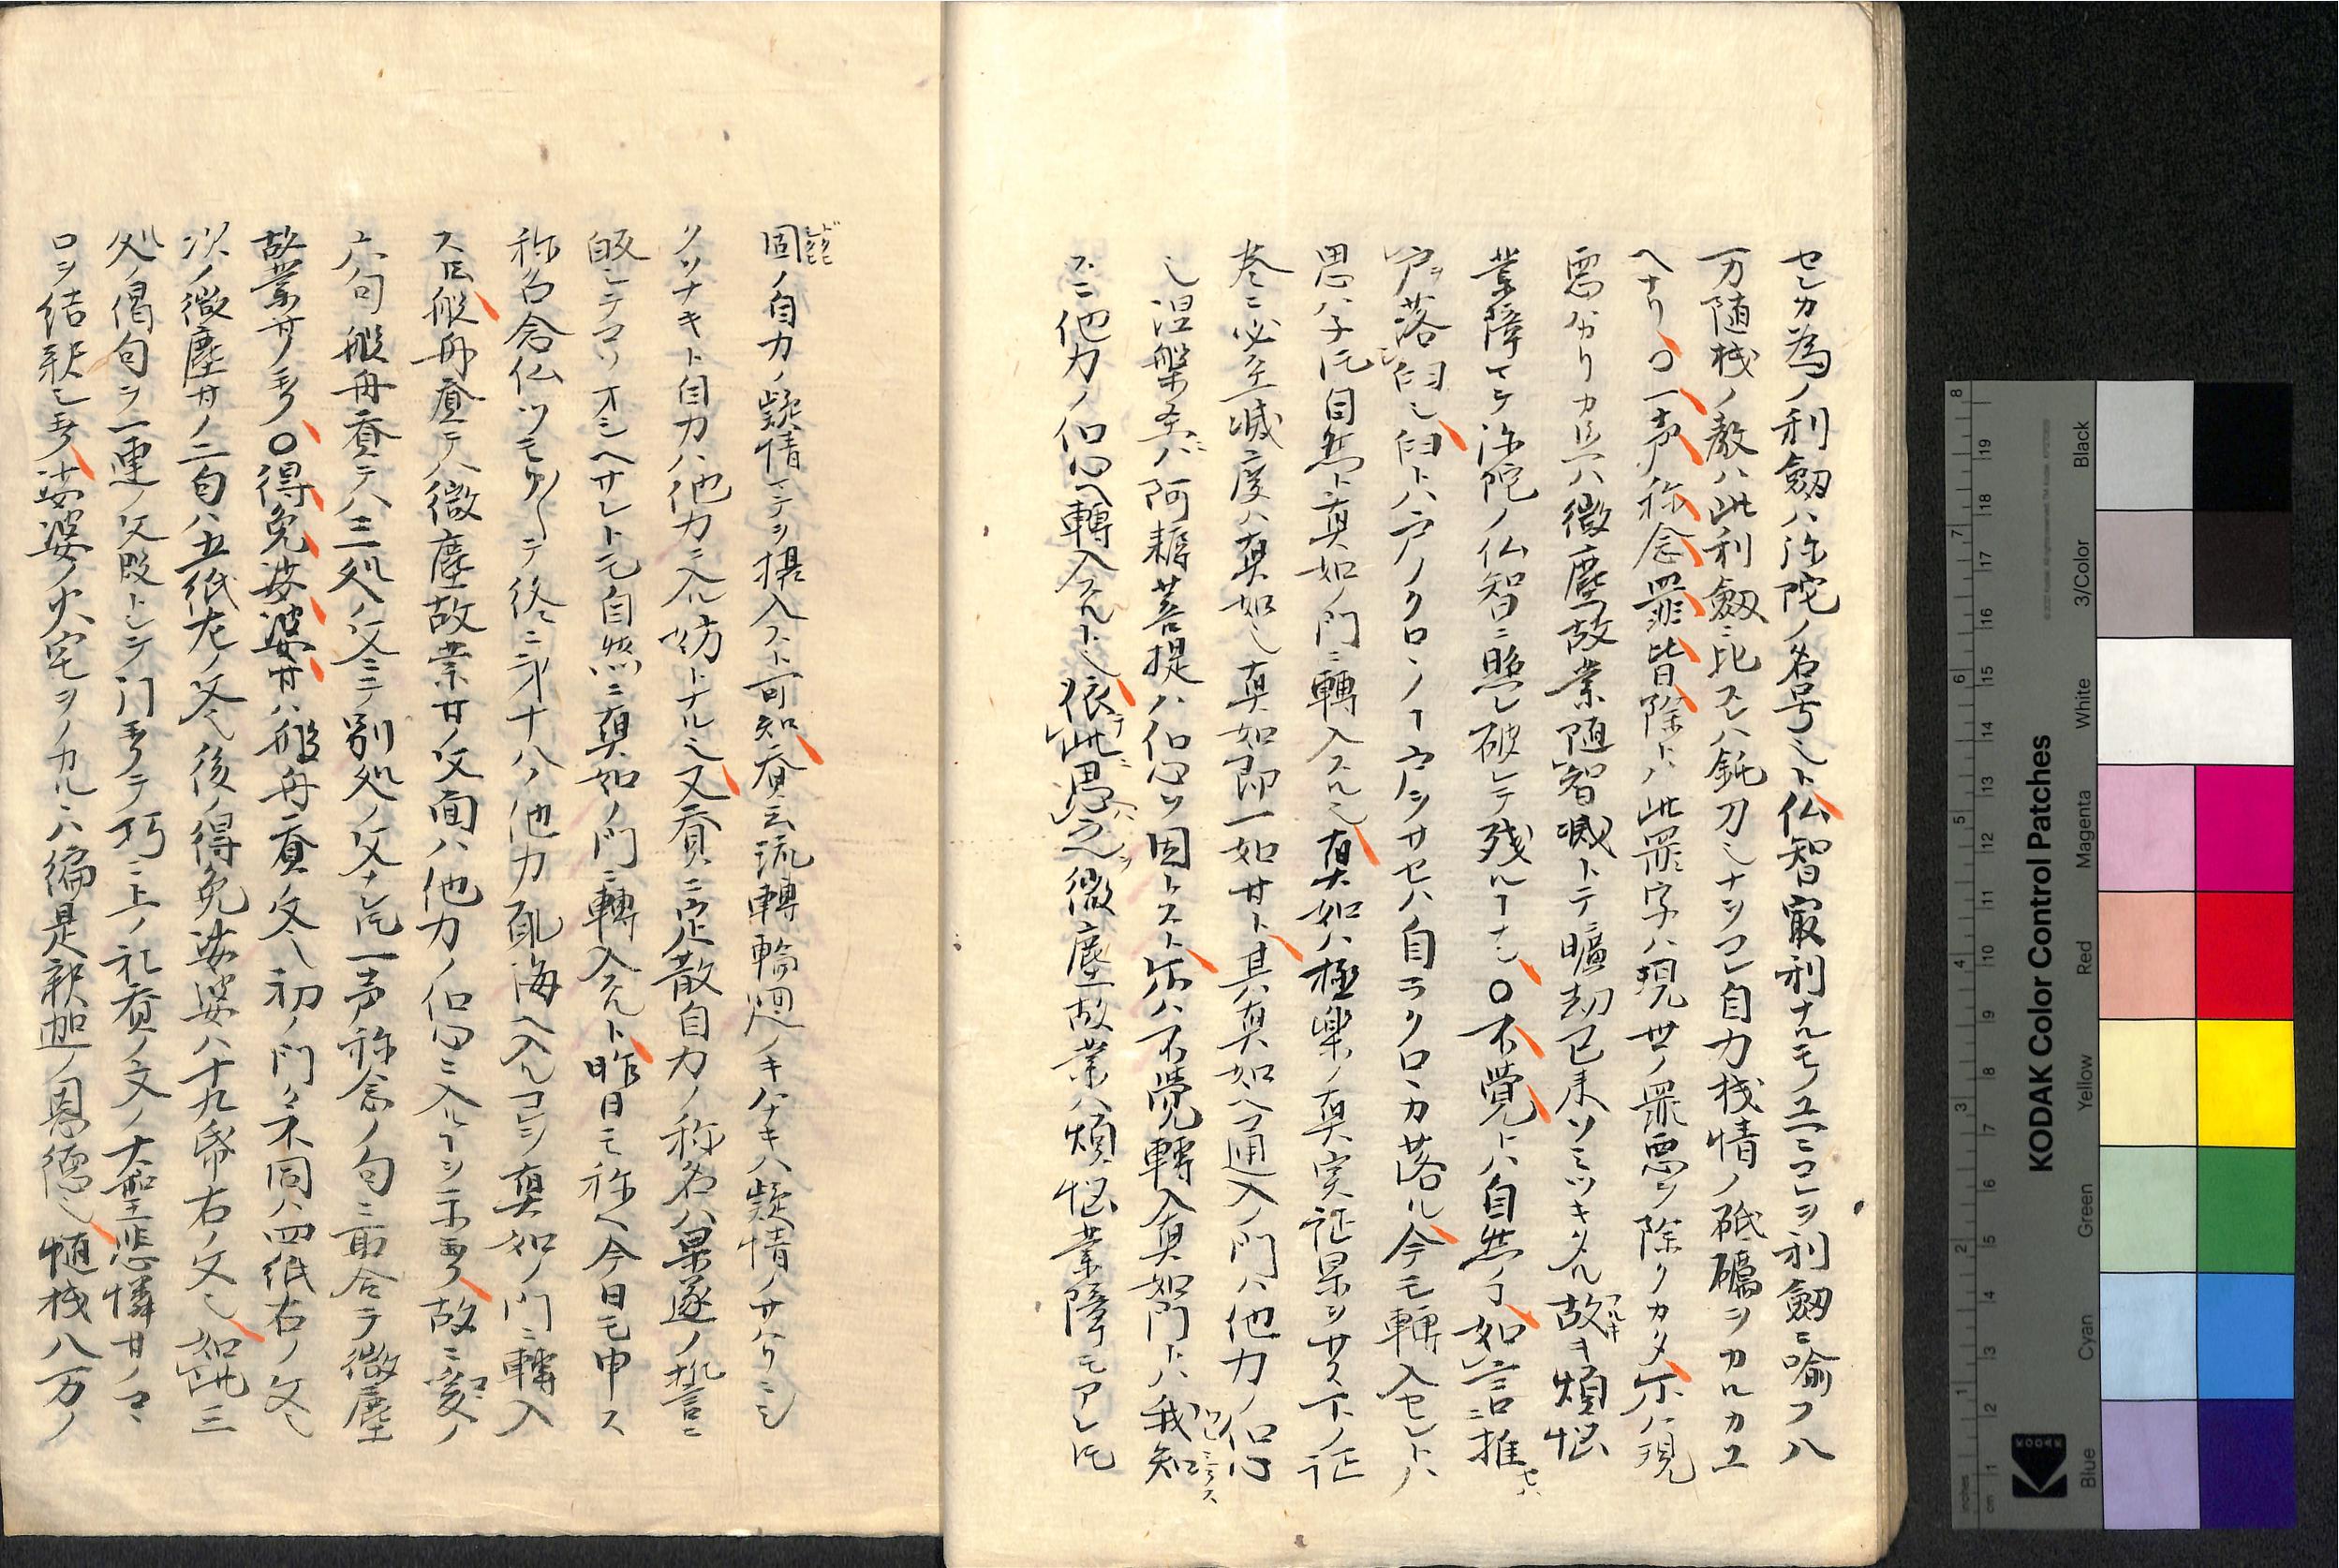 センカ為ノ利劔ハ弥陀ノ名号也ト仏智最利ナルモノユニコレヲ利劔ニ喩フ八
万随機ノ教ハ此利劔ニ比スレハ鈍刀也ナソコレ自力機情ノ砥礪ヲカルカユ
ヘナリ○一声称念罪皆除トハ此罪字ハ現世ノ罪悪ヲ除クカタ尓ハ現
悪ハカリカ民ハ微塵故業随智滅トテ曠劫已来ツミツキタル故キ煩悩
業障マテ弥陀ノ仏智ニ照シ破レテ残ルコナシ○不覚トハ自然ノ如言推
戸落臼也臼トハ戸ノクロヽノコ戸ヲサセハ自ラクロヽカ落ル今モ轉入セントハ
思ハ子𪜈自然ト真如ノ門ニ轉入スル也真如ハ極楽ノ真実証果ヲサス下ノ証
巻ニ必至滅度ハ真如也真如即一如サト具真如ヘ通入ノ門ハ他力ノ信心
也涅槃ハ阿耨菩提ハ信心ヲ因トストホハ不覚轉入真如門トハ我知
スニ他力ノ信心ヘ轉入スルト也依此思之微塵故業ハ煩悩業障マモアレ𪜈
固ノ自力ノ疑情マテヲ摂入スト可知賛云流轉輪廻ノキハナキハ疑情ノサハリニシ
クソナキト自力ハ他力ニ入ル妨トナル也又賛ニ定散自力ノ称名ハ果遂ノ誓ニ
皈シテコソオシヘサレトモ自然ニ真如ノ門ニ轉入スルト昨日モ称ヘ今日モ申ス
称名念仏ツモリ〱テ終ニ第十八ノ他力願海ヘ入ルコヲ真如ノ門ニ轉入
ス云般舟賛テハ微塵故業サノ文面ハ他力ノ信心ニ入ルコヲ示玉フ故ニ爰ノ
六句般舟賛テハ三処ノ文ニテ別処ノ文ナレ𪜈一声称念ノ句ニ取合テ微塵
故業サノ玉フ○得免娑婆サハ般舟賛文也初ノ門々不同ハ四紙右ノ文也
次ノ微塵サノ二句ハ五紙左ノ文也後ノ得免娑婆ハ十九紙右ノ文也如此三
処ノ偈句ヲ一連ノ文段トシテ门玉フテ巧ニ上ノ礼賛ノ文ノ大聖悲憐サノコヽ
ロヲ結釈シ玉フ娑婆ノ火宅ヲノカルヽハ偏是釈迦ノ恩徳也随機八万ノ
KODAK Color Control Patches
Blue Cyan Green Yellow Red Magenta White 3/Color Black